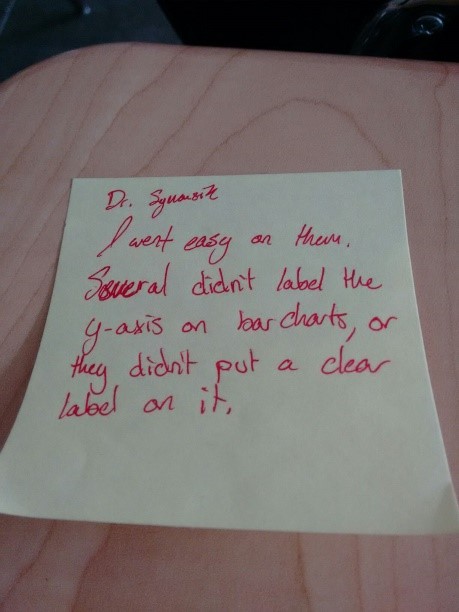 Dr.
I went easy on them.
Several didn't label the
y-axis on bar charts, or
they didn't put a clear
label on it.